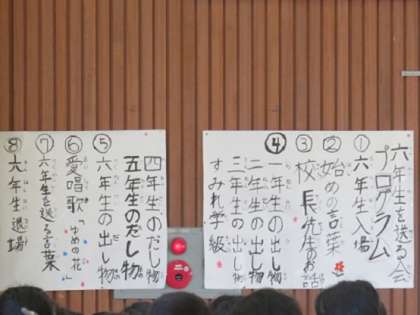 六年生を送る会
プログラム
①六年生入場
②始めの言葉
③校長先生のお話
④一年生の出し物
二年生の出し物
三年生の出し物
すみれ学級
四年生のだし物
五年生のだし物
⑤六年生の出し物
⑥愛唱歌「ゆめの花」
⑦六年生を送る言葉
⑧六年生退場